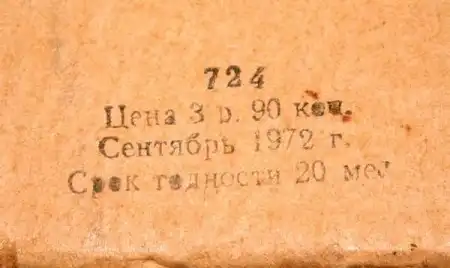 724
Цена 3 р. 90 коп.
Сентябрь 1972 г.
Срок годности 20 мес